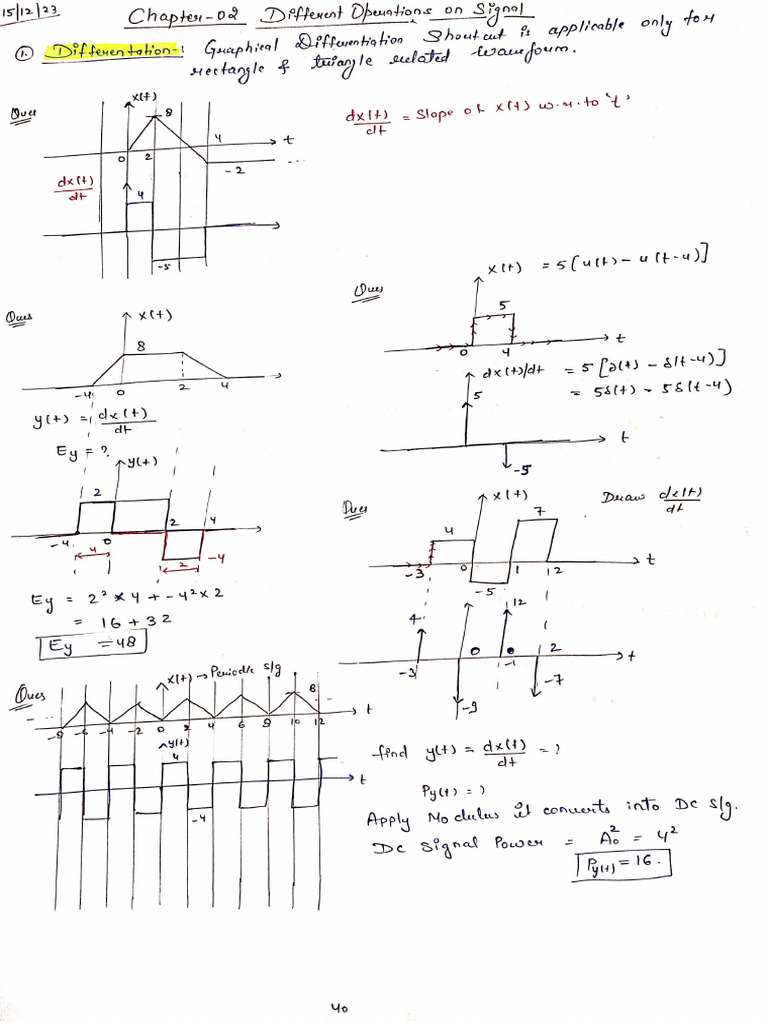 15/12/23
Chapter-02 Different Operations on Signal
1. Differentation-: Graphical Differentiation Shoutcut is applicable only for
rectangle & triangle related waveform.
Ques
x(t)
8
4
t
0
2
-2
...
dx(t)/dt = Slope of x(t) w.r.to 't'
dx(t)/dt
4
-5
Ques
x(t) = 5[u(t) - u(t-4)]
5
t
0
4
dx(t)/dt = 5[δ(t) - δ(t-4)]
= 5δ(t) - 5δ(t-4)
5
t
-5
Ques
x(t)
8
-4
0
2
4
y(t) = dx(t)/dt
Ey = ?
y(t)
2
2
4
-4
0
4
2
-4
Ey = 2² * 4 + -4² * 2
= 16 + 32
Ey = 48
Ques
x(t)
Draw dx(t)/dt
4
7
t
-3
0
1
12
-5
12
4
0
2
t
-3
-1
-9
-7
Ques
x(t) → Periodic s/g
8
t
-8 -6 -4 -2 0 2 4 6 8 10 12
y(t)
4
t
-4
find y(t) = dx(t)/dt = ?
Py(t) = ?
Apply Modulus it converts into DC s/g.
DC Signal Power = A₀² = 4²
Py(t) = 16.
40